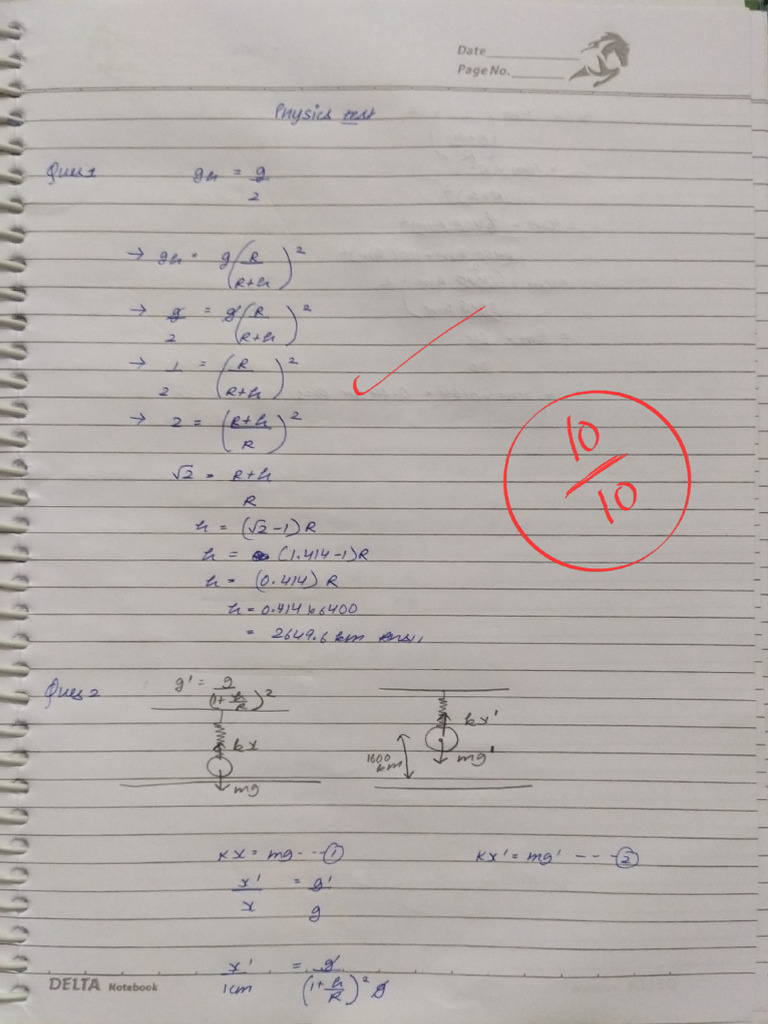 Date
Page No.
Physics test
Ques 1 gh = g/2
→ gh = g(R/(R+h))²
→ g/2 = g(R/(R+h))²
→ 1/2 = (R/(R+h))²
→ 2 = ((R+h)/R)²
√2 = (R+h)/R
h = (√2-1)R
h = (1.414-1)R
h = (0.414) R
h = 0.414 x 6400
= 2649.6 km ans,
10/10
Ques 2 g' = g/(1+h/R)²
kx
mg
kx'
mg'
1600 km
Kx = mg --- ①
Kx' = mg' --- ②
x'/x = g'/g
x'/1cm = g/(1+h/R)² g
DELTA Notebook